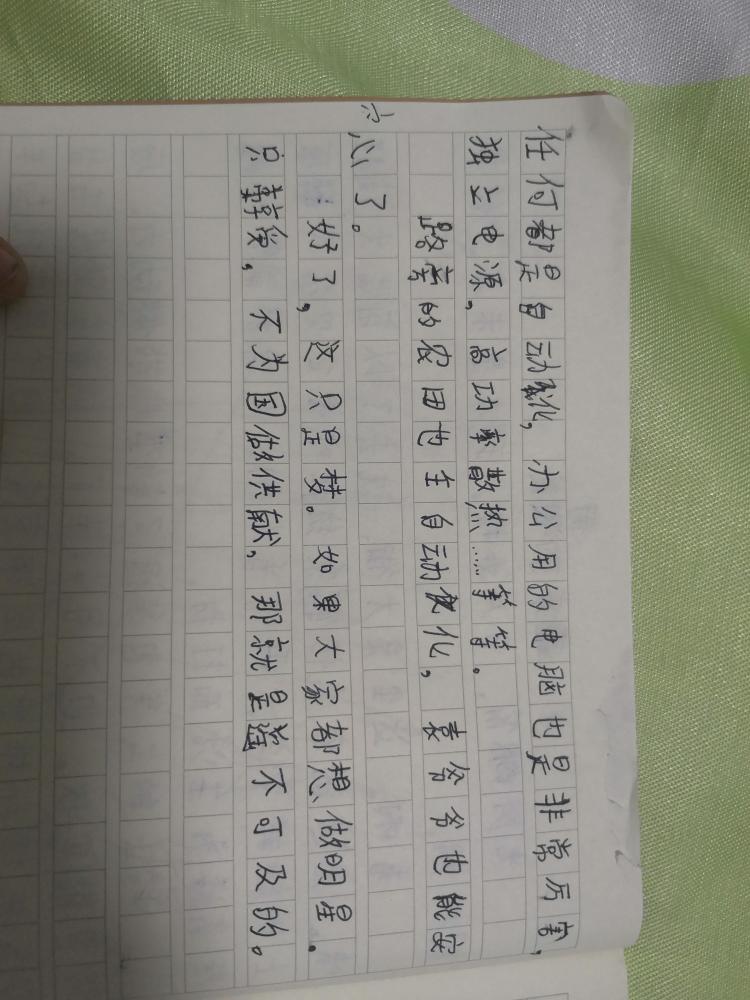 任何都是自动化，办公用的电脑也是非常厉害，
独立电源，高功率散热……等等。
路旁的农田也全自动化，袁爷爷也能安
心了。
好了，这只是梦。如果大家都想做明星。
只靠，不为国做供献，那就是遥不可及的。